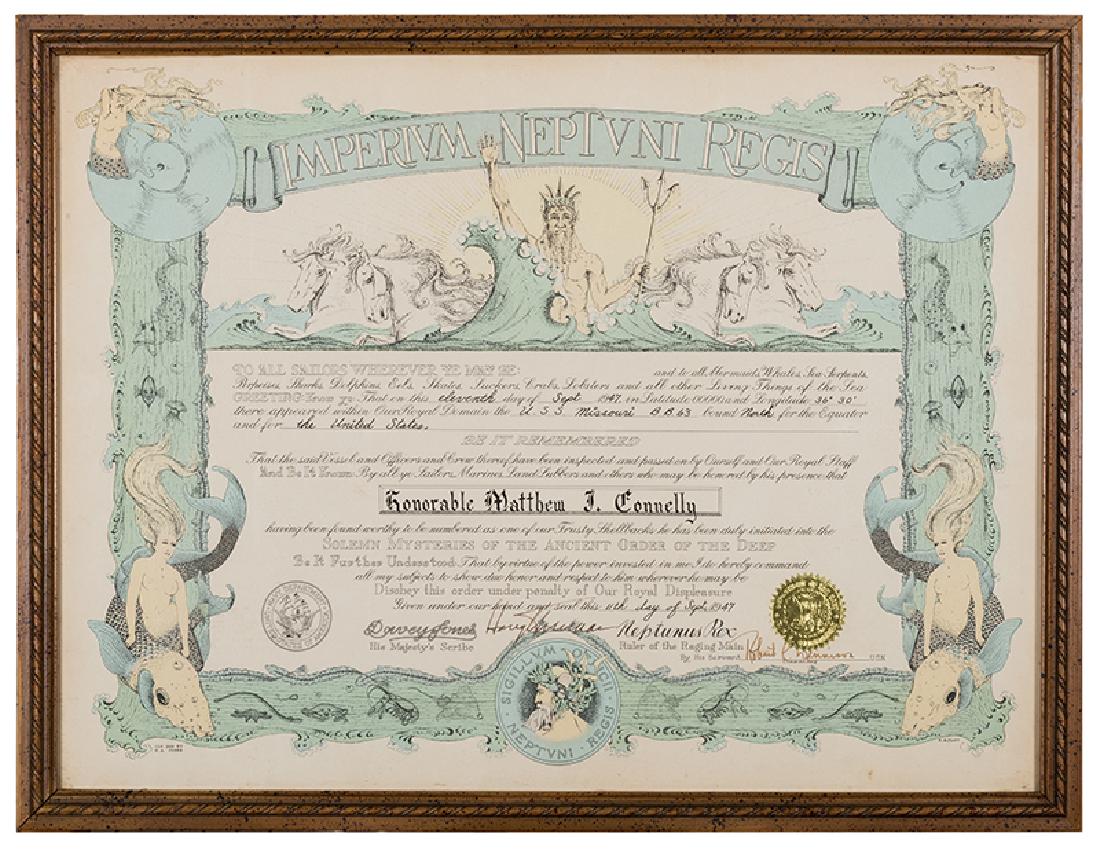 IMPERIVM NEPTVNI REGIS
TO ALL SAILORS WHEREVER YE MAY BE: and to all Mermaids, Whales, Sea Serpents,
Porpoises, Sharks, Dolphins, Eels, Skates, Suckers, Crabs, Lobsters and all other Living Things of the Sea
GREETING: Know ye: That on this eleventh day of Sept 1947, in Latitude 00000 and Longitude 36° 30'
there appeared within Our Royal Domain the U.S.S. Missouri B B 63 bound North for the Equator
and for the United States.
BE IT REMEMBERED
That the said Vessel and Officers and Crew thereof have been inspected and passed on by Ourself and Our Royal Staff
And Be It Known: By all ye Sailors, Marines, Land Lubbers and others who may be honored by his presence that
Honorable Matthew J. Connelly
having been found worthy to be numbered as one of our Trusty Shellbacks he has been duly initiated into the
SOLEMN MYSTERIES OF THE ANCIENT ORDER OF THE DEEP
Be It Further Understood: That by virtue of the power invested in me I do hereby command
all my subjects to show due honor and respect to him wherever he may be
Disobey this order under penalty of Our Royal Displeasure
Given under our hand and seal this 11th day of Sept, 1947
Davey Jones Harry Truman Neptunus Rex
His Majesty's Scribe Ruler of the Raging Main
By His Servant, Robert USN
SIGILLVM OFFICII
NEPTVNI REGIS